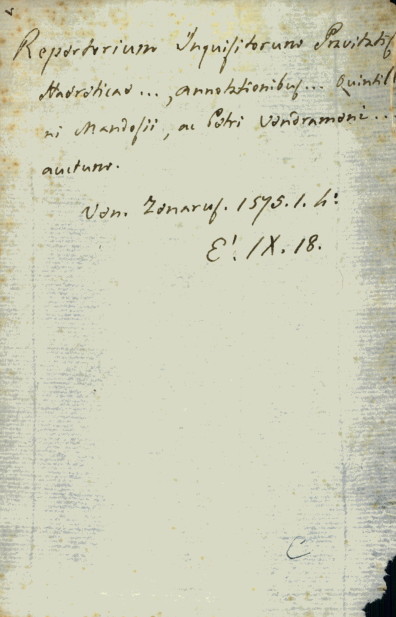 Repertorium Inquisitorum Pravitatis
Haereticae ..., annotationibus ... Quintilli
ni Mandosii, ac Petri Vendrameni ...
auctum.
Ven. Zenarus. 1575. 1. h:
E!. IX. 18.
C